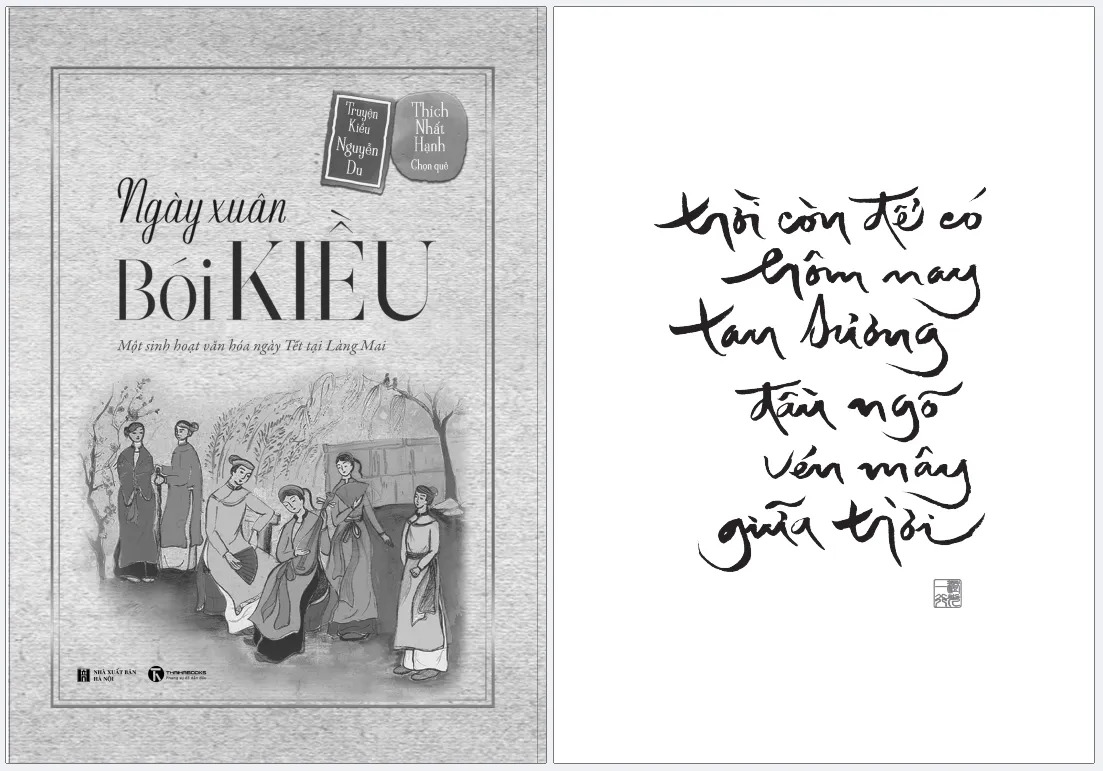 Truyện
Kiều
Nguyễn
Du
Thích
Nhất
Hạnh
Chọn quẻ
Ngày xuân
Bói KIỀU
Một sinh hoạt văn hóa ngày Tết tại Làng Mai
NHÀ XUẤT BẢN
HÀ NỘI
THAIHABOOKS
trời còn để có
hôm nay
tan sương
đầu ngõ
vén mây
giữa trời